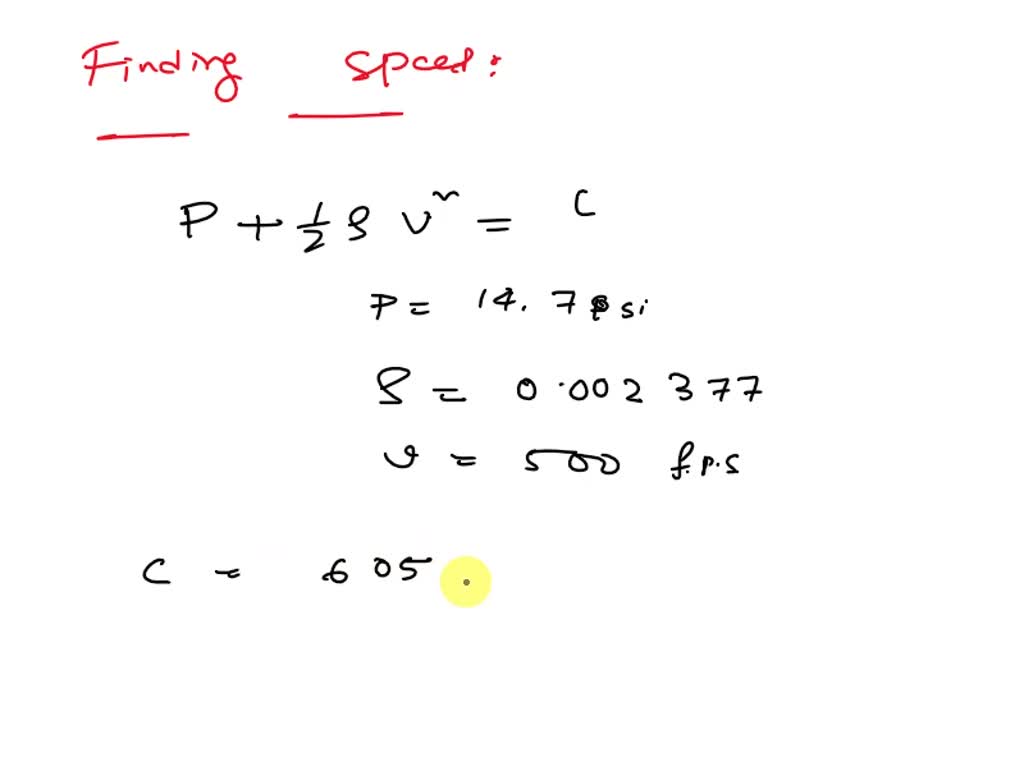 Finding speed:
P + 1/2 ρ v² = C
P = 14.7 psi
ρ = 0.002377
v = 500 f.p.s
C = 605